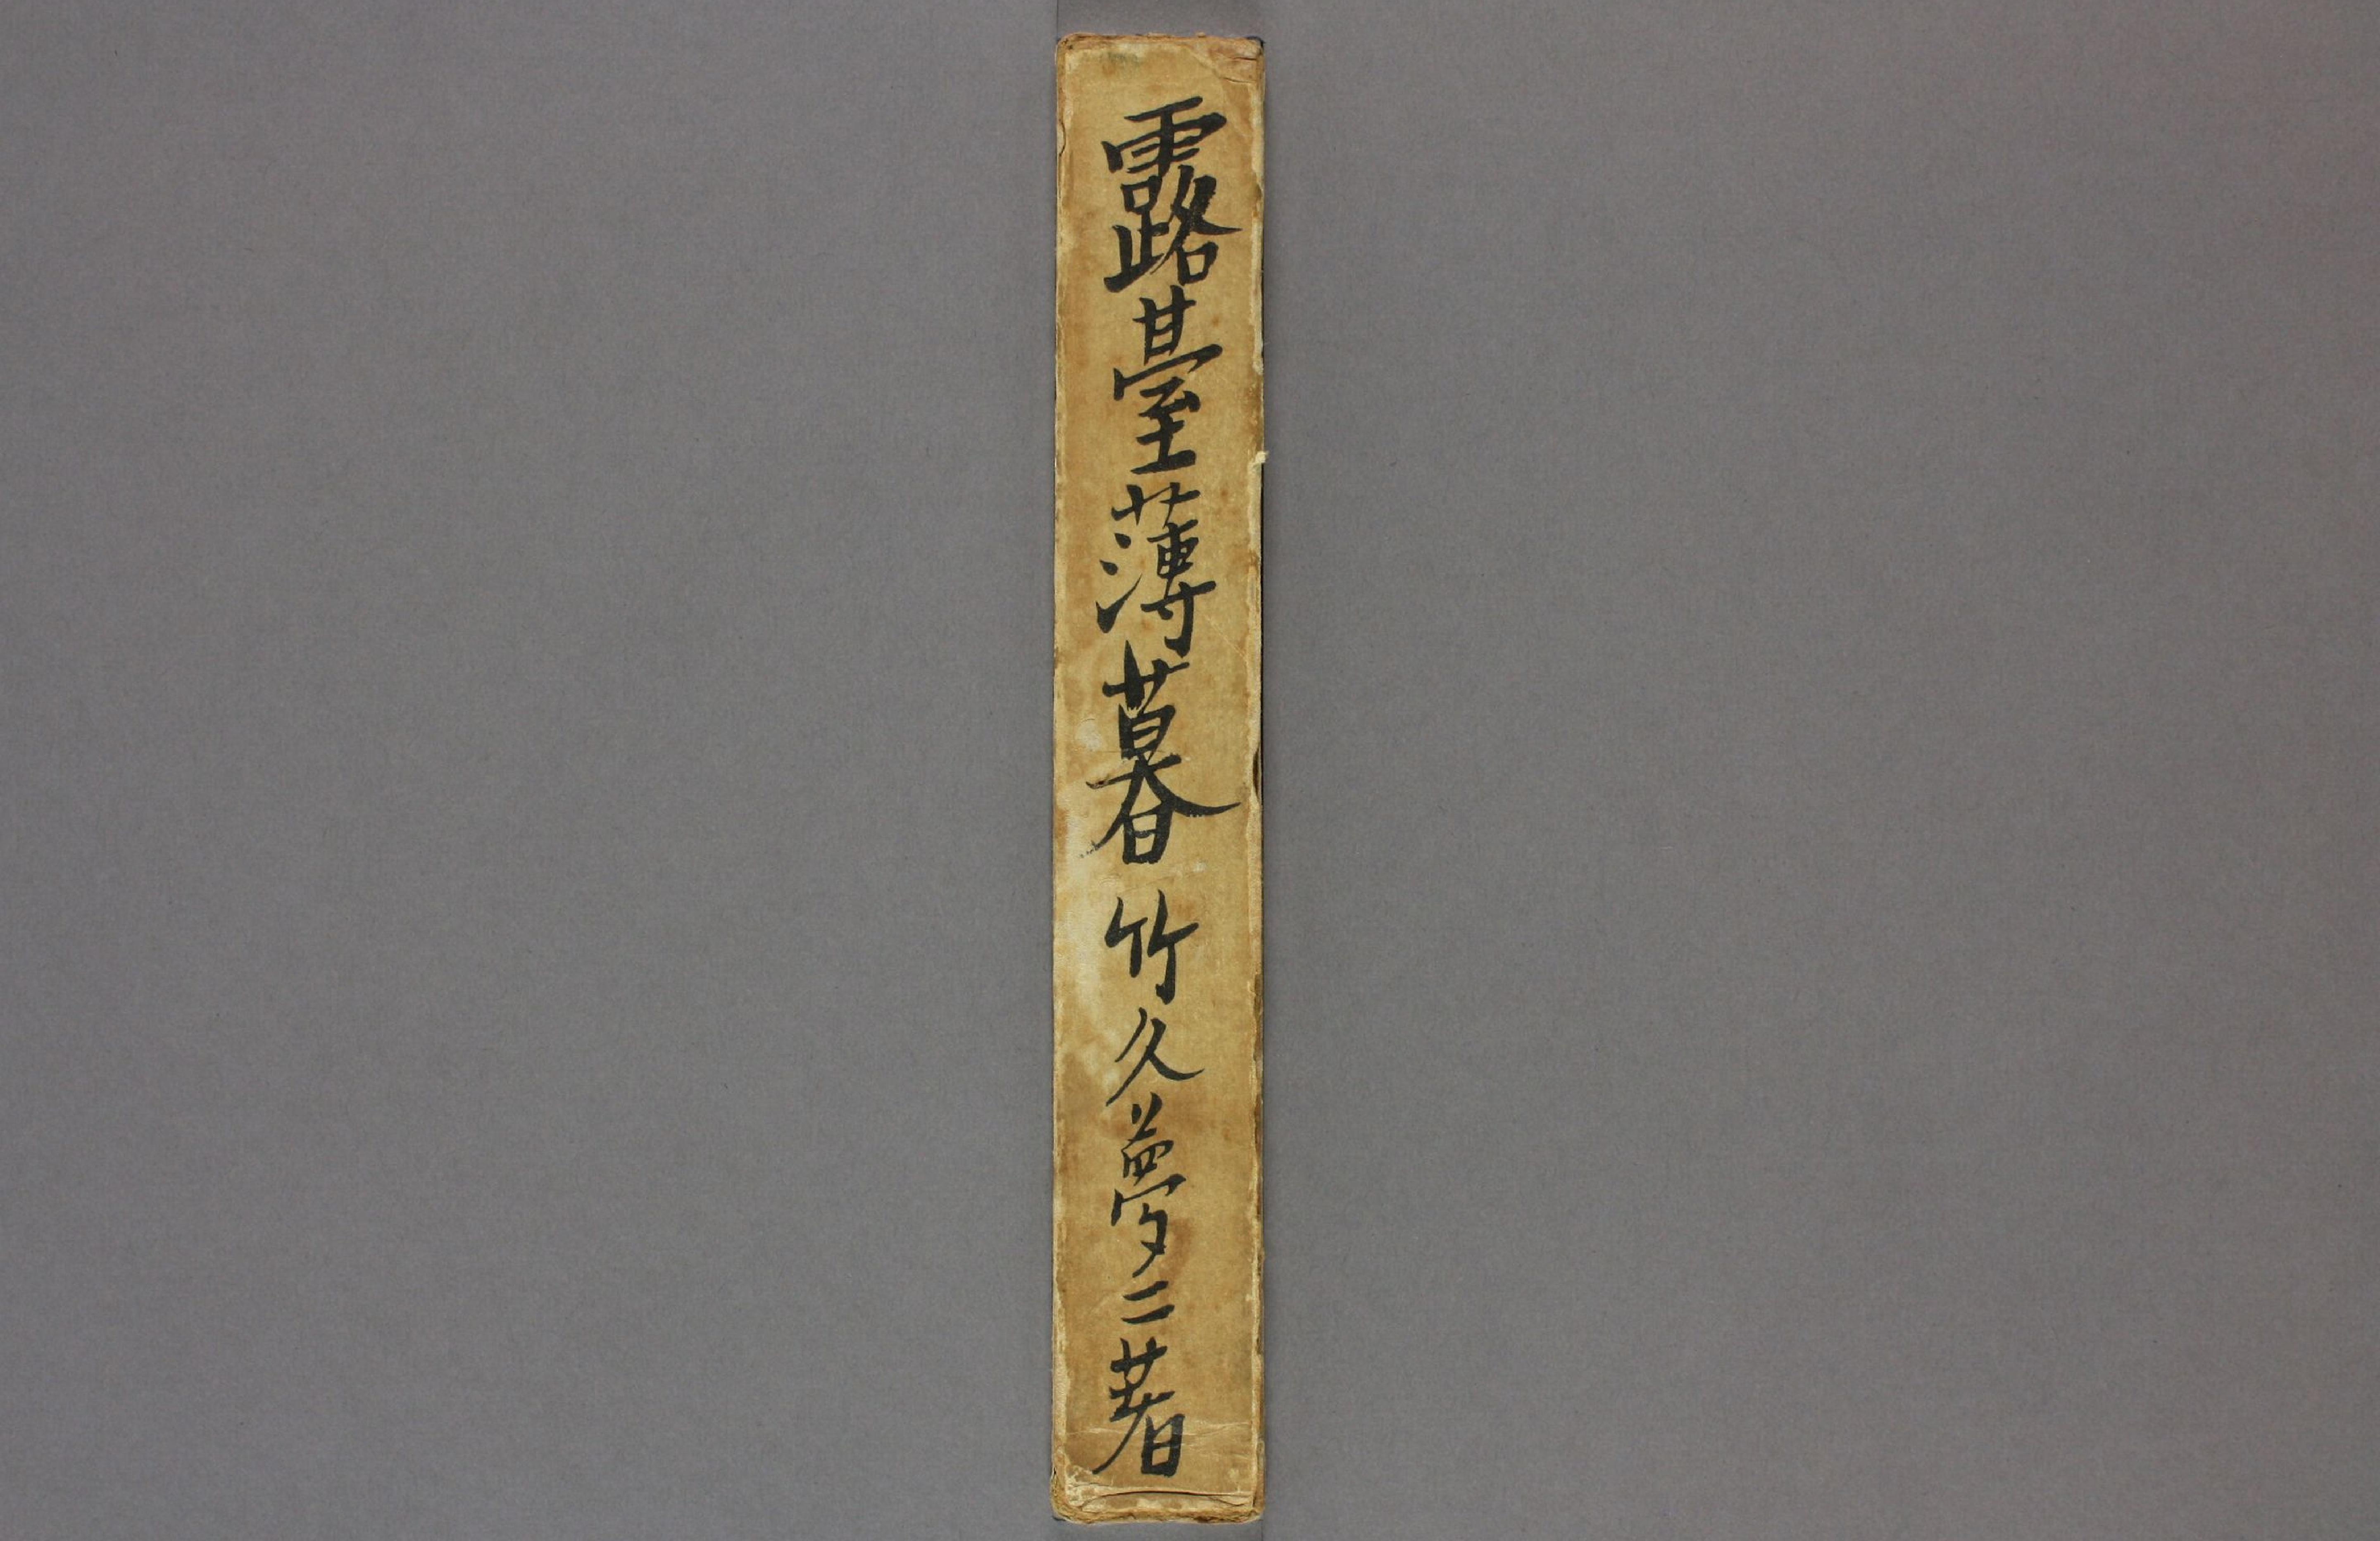 露臺薄暮 竹久夢二著